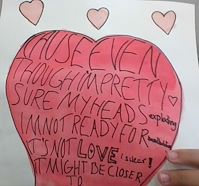 CAUSE EVEN
THOUGH IM PRETTY
SURE MY HEADS exploding
IM NOT READY FOR
ITS NOT LOVE I swear!
IT MIGHT BE CLOSER
TO